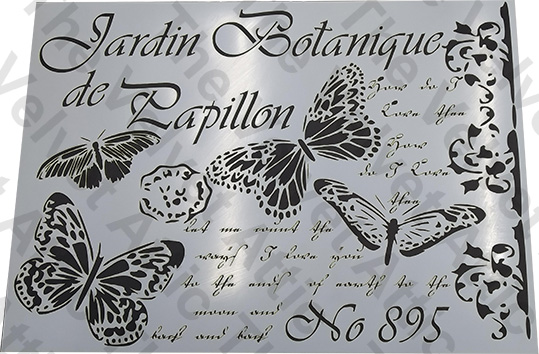 Jardin Botanique
de Papillon
How do I
Love thee
How
do I Love
thee
let me count the
ways I love you
to the ends of earth to the
moon and
back and back
No 895
The Velvet Attic